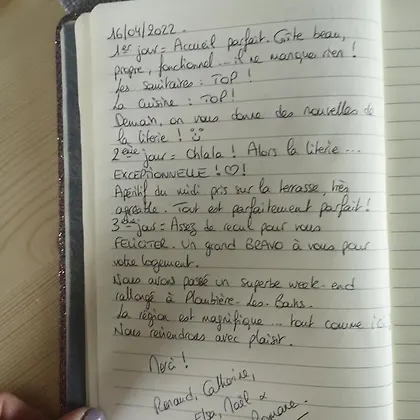 16/04/2022.
1er jour = Accueil parfait. Gîte beau,
propre, fonctionnel... il ne manque rien !
Les sanitaires : TOP !
La cuisine : TOP !
Demain, on vous donne des nouvelles de
la literie !
2ème jour = Ohlala ! Alors la literie ...
EXCEPTIONNELLE ! ♡ !
Apéritif du midi pris sur la terrasse, très
agréable. Tout est parfaitement parfait !
3ème jour = Assez de recul pour vous
FELICITER. Un grand BRAVO à vous pour
votre logement.
Nous avons passé un superbe week-end
rallongé à Plombière-Les-Bains.
La région est magnifique ... tout comme ici
Nous reviendrons avec plaisir.
Merci !
Renaud, Catherine,
Elsa, Naël &
Romane